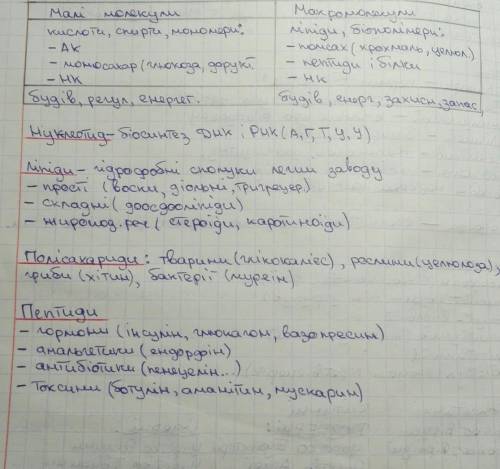 Малі молекули
Макромолекули
кислоти, спирти, мономери:
- АК
- моносахар (глюкоза,
- НК
ліпіди, біополімери:
- полісах (крохмаль, целюл.)
- пептиди і білки
- НК
будів, регул, енергет.
будів, енерг, захисн, запас,
Нуклеотид - біосинтез ДНК і РНК (А, Г, Т, Ц, У)
Ліпіди - гідрофобні сполуки легші заводу
- прості (воски, діольні, тригліцер.)
- складні (
- жиропод. реч (стероїди, каротиноїди)
Полісахариди: тварини (глікокалікс), рослини (целюлоза),
гриби (хітин), бактерії (муреїн)
Пептиди
- гормони (інсулін, глюкагом, вазопресин)
- анальгетики (ендорфін)
- антибіотики (пенецелін...)
- Токсини (ботулін, аманітин, мускарин)